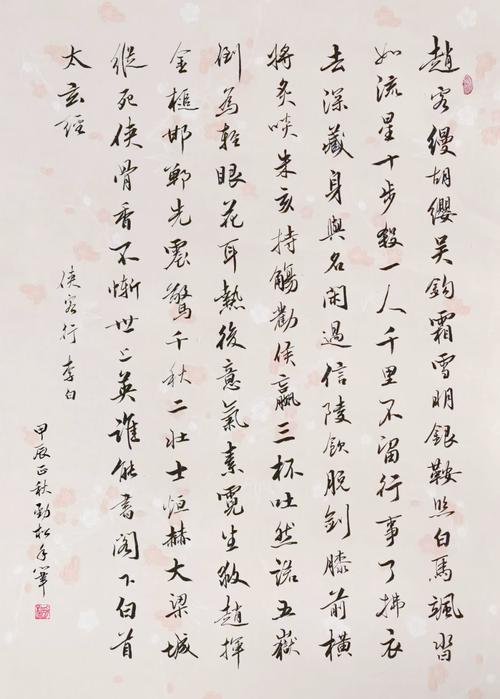 趙客縵胡纓吳鉤霜雪明銀鞍照白馬颯沓
如流星十步殺一人千里不留行事了拂衣
去深藏身與名閑過信陵飲脫劍膝前橫
將炙啖朱亥持觴勸侯嬴三杯吐然諾五嶽
倒為輕眼花耳熱後意氣素霓生救趙揮
金槌邯鄲先震驚千秋二壯士烜赫大梁城
縱死俠骨香不慚世上英誰能書閣下白首
太玄經
俠客行 李白
甲辰正秋勁松手筆